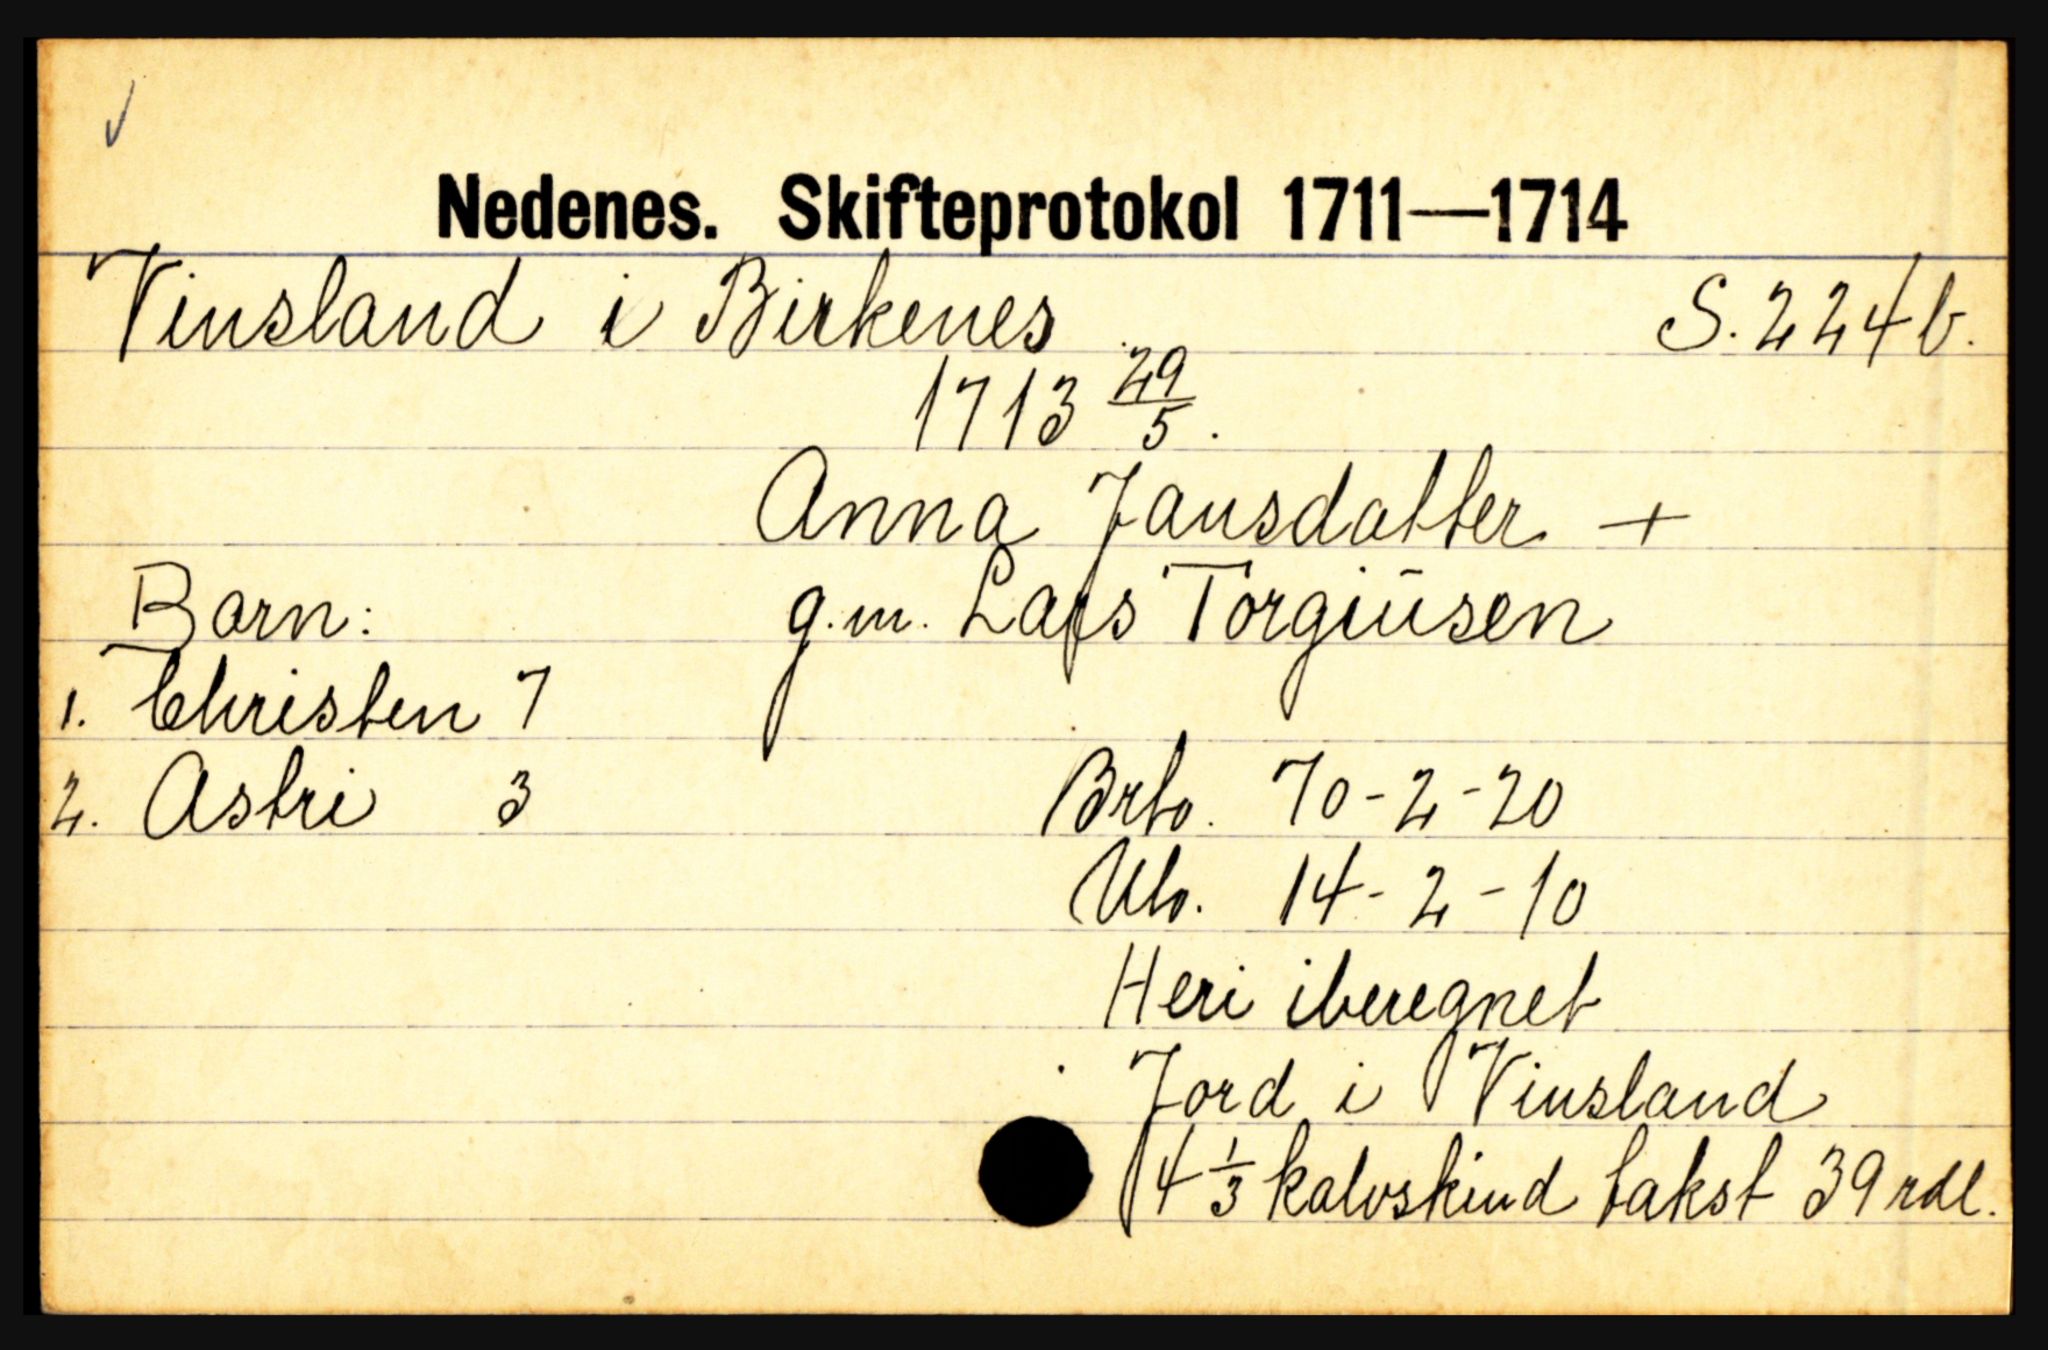 Nedenes. Skifteprotokol 1711—1714
Vinsland i Birkenes S. 224b.
1713 29/5.
Anna Jansdatter +
Barn: g.m. Lars Torgiusen
1. Christen 7
2. Astri 3 Brto. 70-2-20
Uto. 14-2-10
Heri iberegnet
Jord i Vinsland
4 1/3 kalvskind takst 39 rdl.